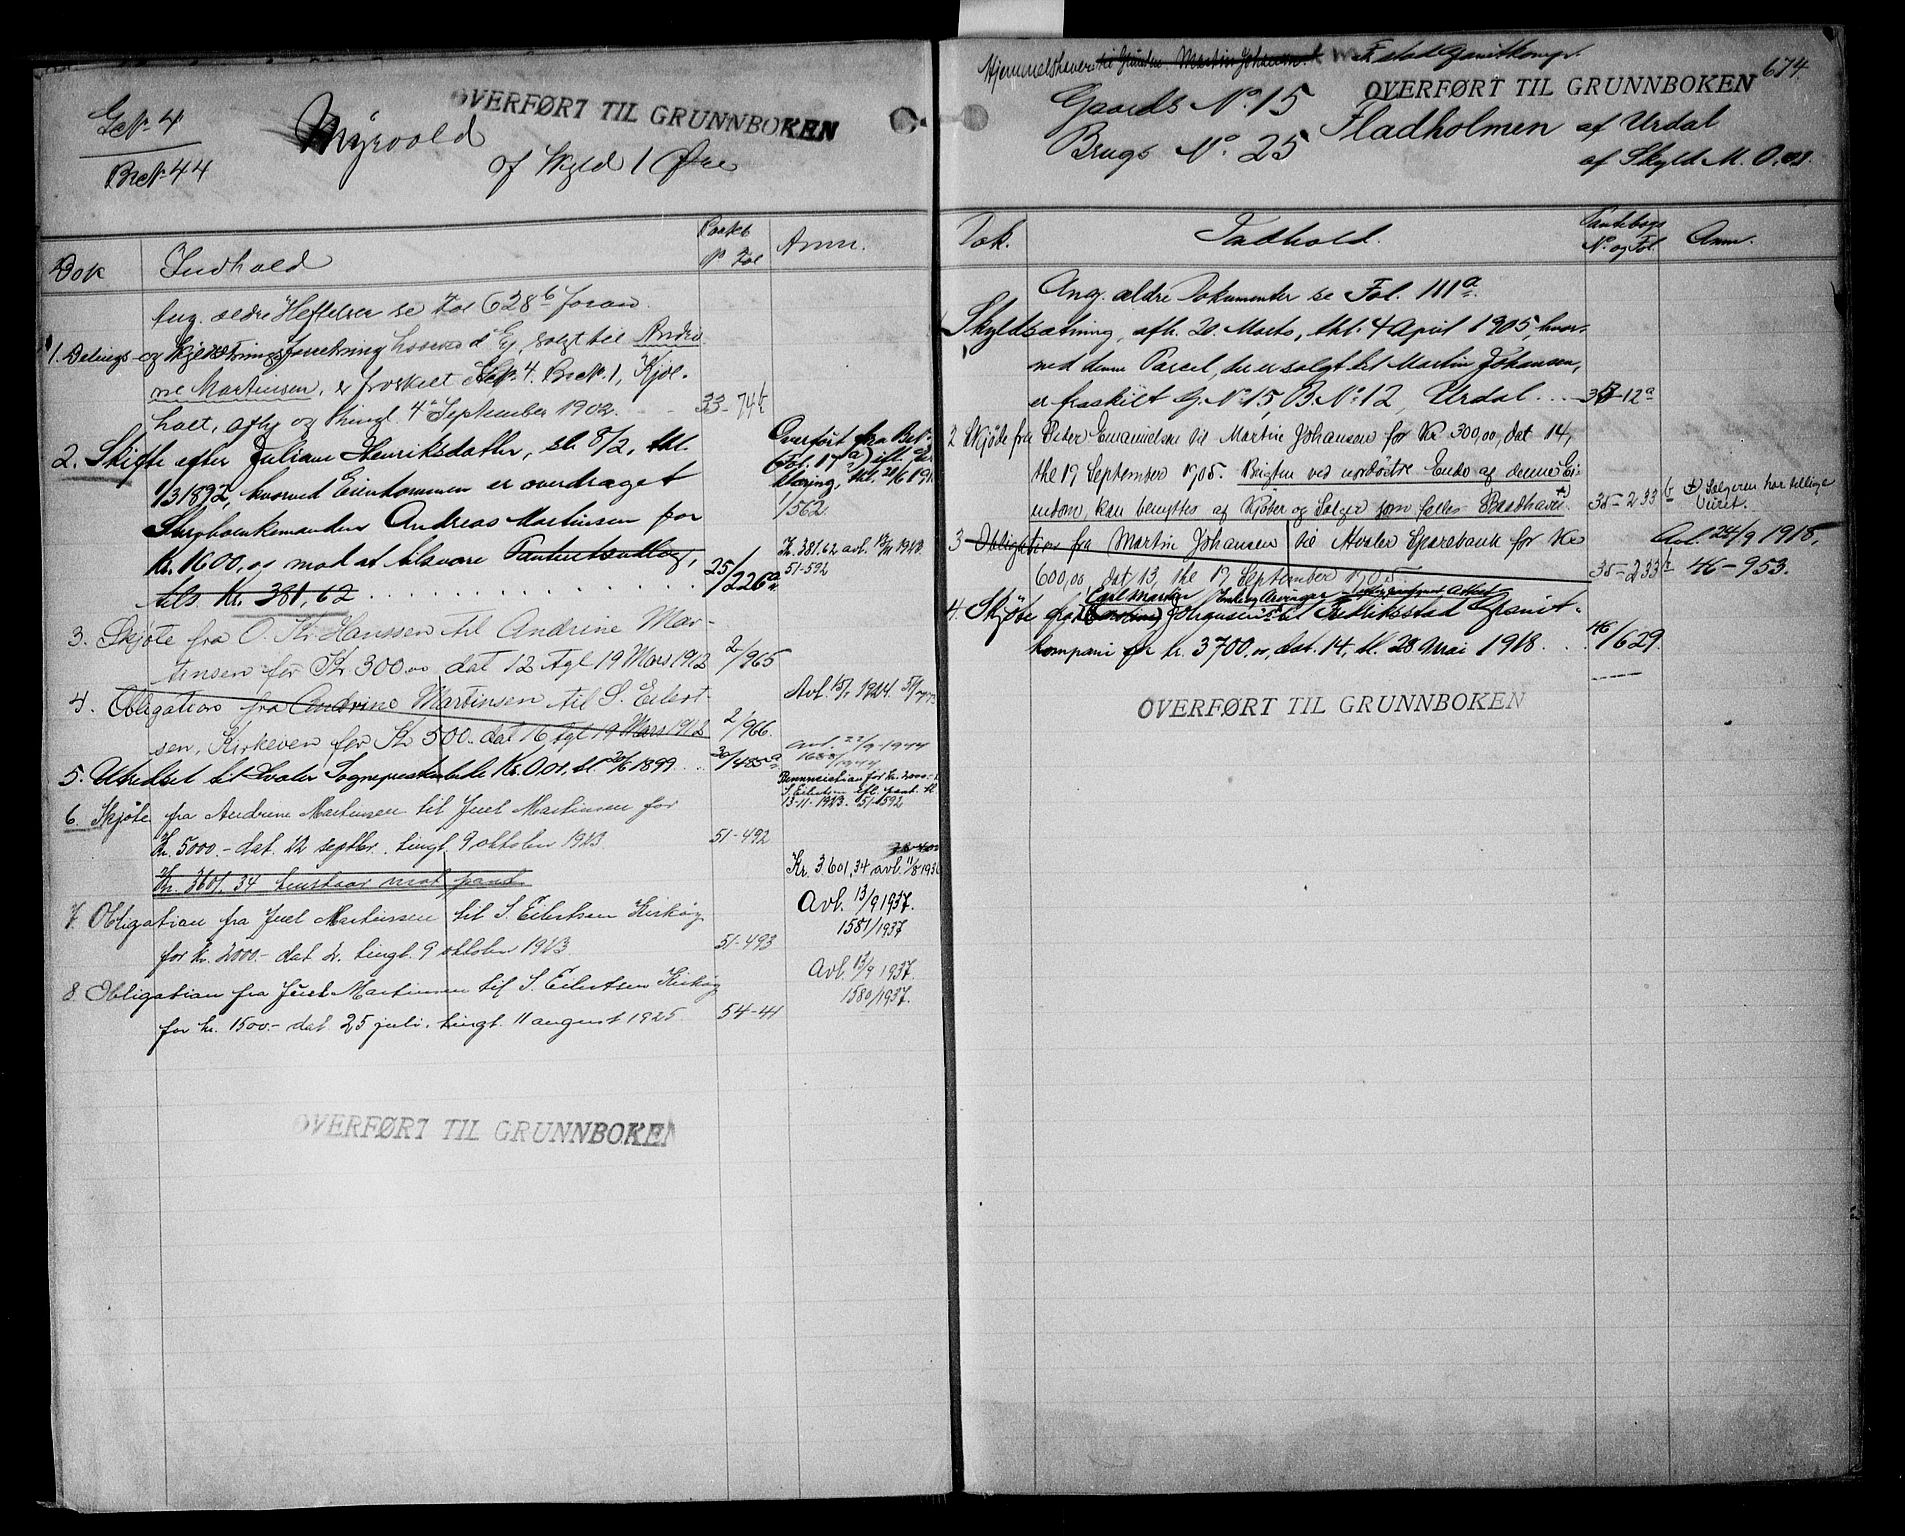 G.No. 4
Br.No. 44
Myrvold
OVERFØRT TIL GRUNNBOKEN
af Skyld 1 Øre
Dok
Indhold
No Fol
Anm.
Ang. ældre Heftelser se Fol 628 b foran.
1. Delings- og Skyldsætningsforretning hvorved Ej. solgt til Andri-
ne Martinsen, er fraskilt G.No. 4. Br.No. 1, Kjøl-
holt, afhj og thingl. 4de September 1902. 33-74b
2. Skifte efter Juliane Henriksdatter, sl. 8/2, thl.
1/3 1892, hvorved Eiendommen er overdraget
Andreas Martinsen for
Kr. 1600,00 mod at tilsvare Panteutlæg,
tils. Kr. 381,62 25/226a
Overført fra
Fol. 17a) ifl.
klæring, thl.
1/562
Kr. 381.62 avl.
51-592
3. Skjøte fra O. Kr. Hanssen til Andrine Mar-
tinsen for Kr 300.00 dat 12 tgl 19 Mars 1912 2/965
4. Obligation fra Andrine Martinsen til S. Eilert-
sen, Kirkeøen for Kr 500.- dat 16 tgl 19 Mars 1912 2/966.
5. til Hvaler Kr. 0.01, tl. 1899 30/485a
6. Skjøte fra Andrine Martinsen til Juel Martinsen for
Kr. 5000.- dat. 22 septbr. tingl. 9 oktober 1923. 51-492
13-11-1923. 51-592
Kr. 3601,34 henstaar mot pant.
Kr. 3601,34 avl. 11/8 1936
7. Obligation fra Juel Martinsen til S. Eilertsen Kirkøy
for Kr. 2000.- dat 2. tingl. 9 oktober 1923 51-493
Avl. 13/9 1937.
1581/1937
8. Obligation fra Juel Martinsen til S. Eilertsen Kirkøy
for kr. 1500.- dat 25 juli. tingl. 11 august 1925 54-41
Avl. 13/9 1937.
1580/1937.
OVERFØRT TIL GRUNNBOKEN
Hjemmelshaver til Grunden Martin Johansen
674.
OVERFØRT TIL GRUNNBOKEN
Gaards No. 15
Brugs No. 25
Fladholmen af Urdal
af Skyld M. 0.01.
Dok.
Indhold.
Pantebogs
No. og Fol.
Anm.
Ang. ældre Dokumenter se Fol. 111a.
1 Skyldsætning, afh. 20. Marts, thl. 4 April 1905, hvor-
ved denne Parcel, der er solgt til Martin Johansen,
er fraskilt G. No. 15, B. No. 12, Urdal. 35-12a
2 Skjøde fra Peter Emanuelsen til Martin Johansen for Kr. 300,00, dat 14,
thl 19 September 1905. Brygten ved nordøstre Ende af denne Ei-
endom, kan benyttes af Kjøber og Sælger som fælles Baadhavn +) 35-233b
+) Sælgeren har tillige
Veiret.
3 Obligation fra Martin Johansen til Hvaler Sparebank for Kr.
600,00, dat 13, thl 19 September 1905. 35-233b
Avl. 24/9 1918,
46-953.
Carl Martin
4. Skjøte fra Jörgensen til Fredriksstad Granit-
kompani for kr. 3700.00, dat. 14, tl. 28 Mai 1918. 46/629.
OVERFØRT TIL GRUNNBOKEN